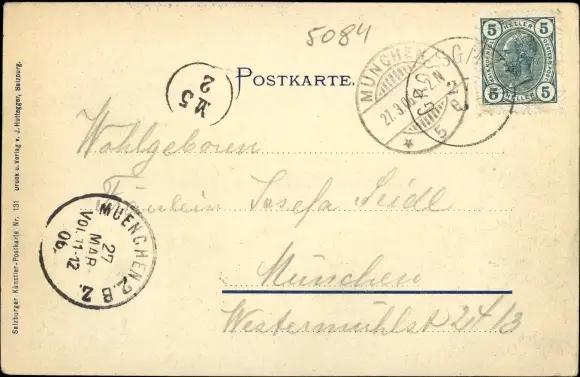 5084
POSTKARTE.
5 HELLER 5
5 HELLER 5
MÜNCHEN
5
M 5
2
Wohlgeboren
Fräulein Josefa Seidl
München
Westermühlst 24/3
MUENCHEN 2. B. Z.
27
MAR
VOI. 11-12
06.
Salzburger Künstler-Postkarte Nr. 131 Druck u. Verlag v. J. Huttegger, Salzburg.